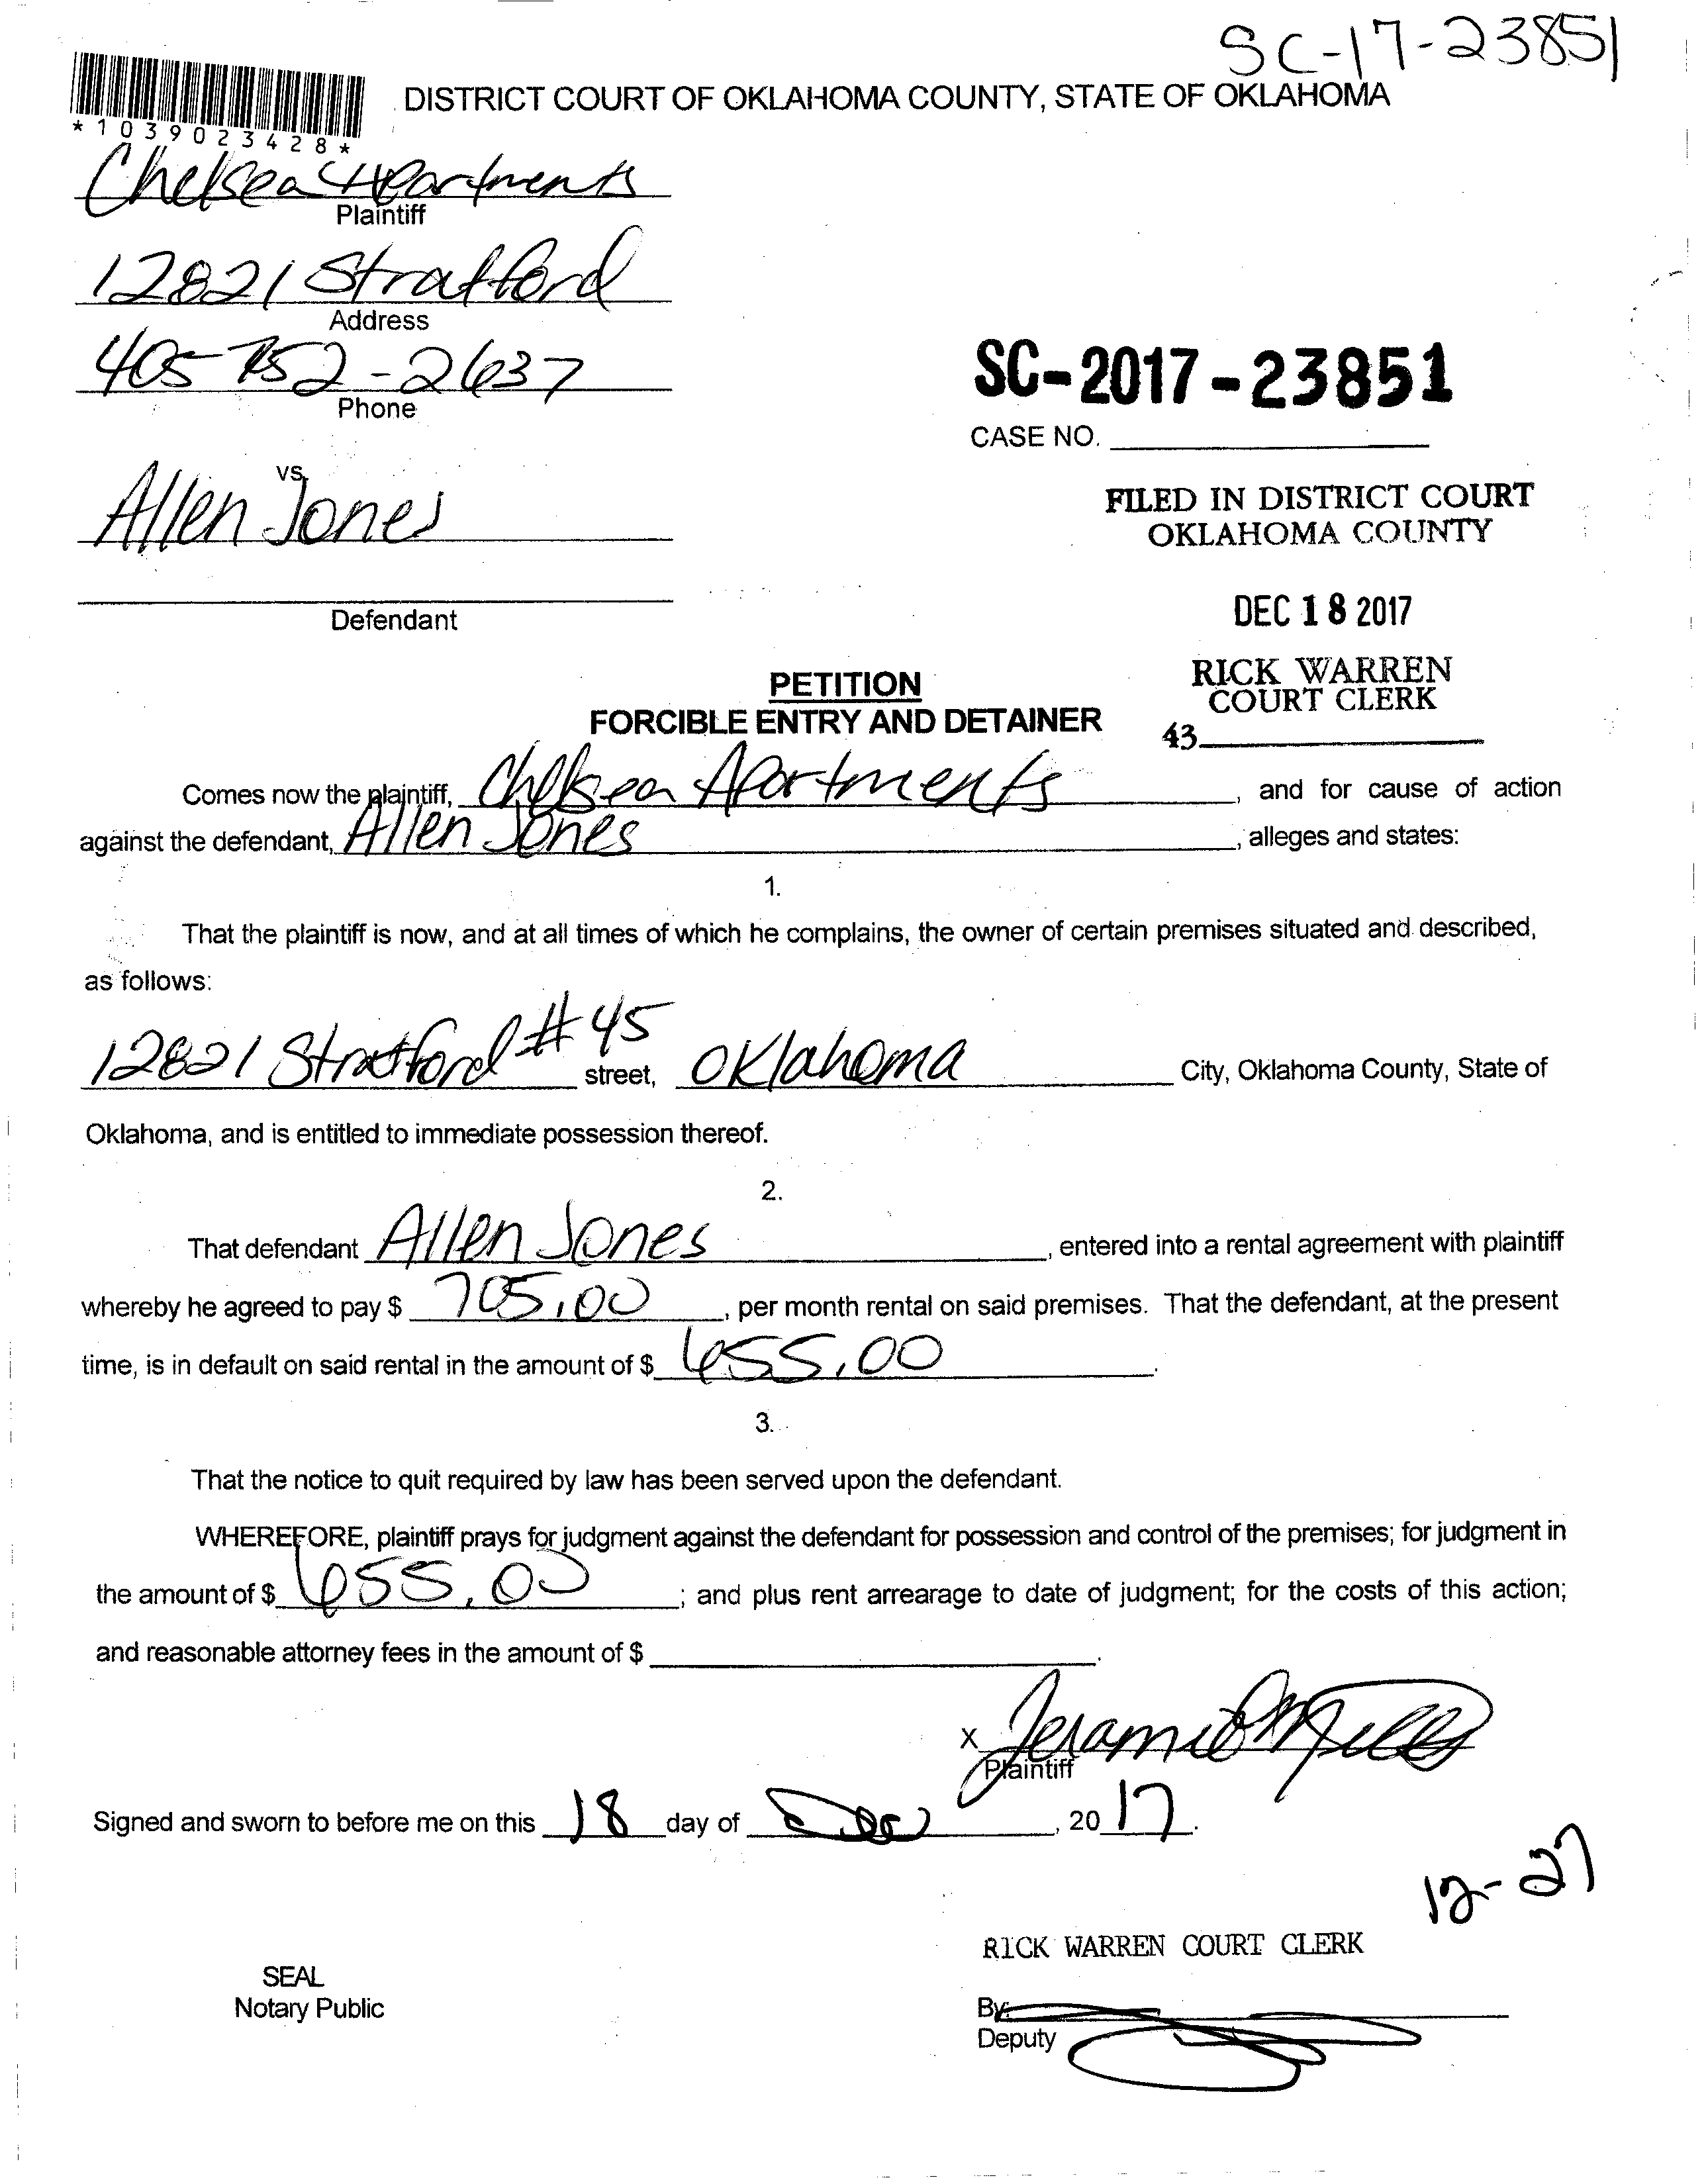 SC-17-23851
DISTRICT COURT OF OKLAHOMA COUNTY, STATE OF OKLAHOMA
*1039023428*
Chelsea Apartments
Plaintiff
12821 Stratford
Address
405-752-2637
Phone
SC-2017-23851
CASE NO.
vs.
Allen Jones
FILED IN DISTRICT COURT
OKLAHOMA COUNTY
Defendant
DEC 18 2017
RICK WARREN
COURT CLERK
43
PETITION
FORCIBLE ENTRY AND DETAINER
Comes now the plaintiff, Chelsea Apartments, and for cause of action
against the defendant, Allen Jones, alleges and states:
1.
That the plaintiff is now, and at all times of which he complains, the owner of certain premises situated and described,
as follows:
12821 Stratford #45 street, Oklahoma City, Oklahoma County, State of
Oklahoma, and is entitled to immediate possession thereof.
2.
That defendant Allen Jones, entered into a rental agreement with plaintiff
whereby he agreed to pay $ 705.00, per month rental on said premises. That the defendant, at the present
time, is in default on said rental in the amount of $ 655.00.
3.
That the notice to quit required by law has been served upon the defendant.
WHEREFORE, plaintiff prays for judgment against the defendant for possession and control of the premises; for judgment in
the amount of $ 655.00; and plus rent arrearage to date of judgment; for the costs of this action;
and reasonable attorney fees in the amount of $ .
X
Plaintiff
Signed and sworn to before me on this 18 day of Dec, 2017.
12-27
RICK WARREN COURT CLERK
SEAL
Notary Public
By:
Deputy